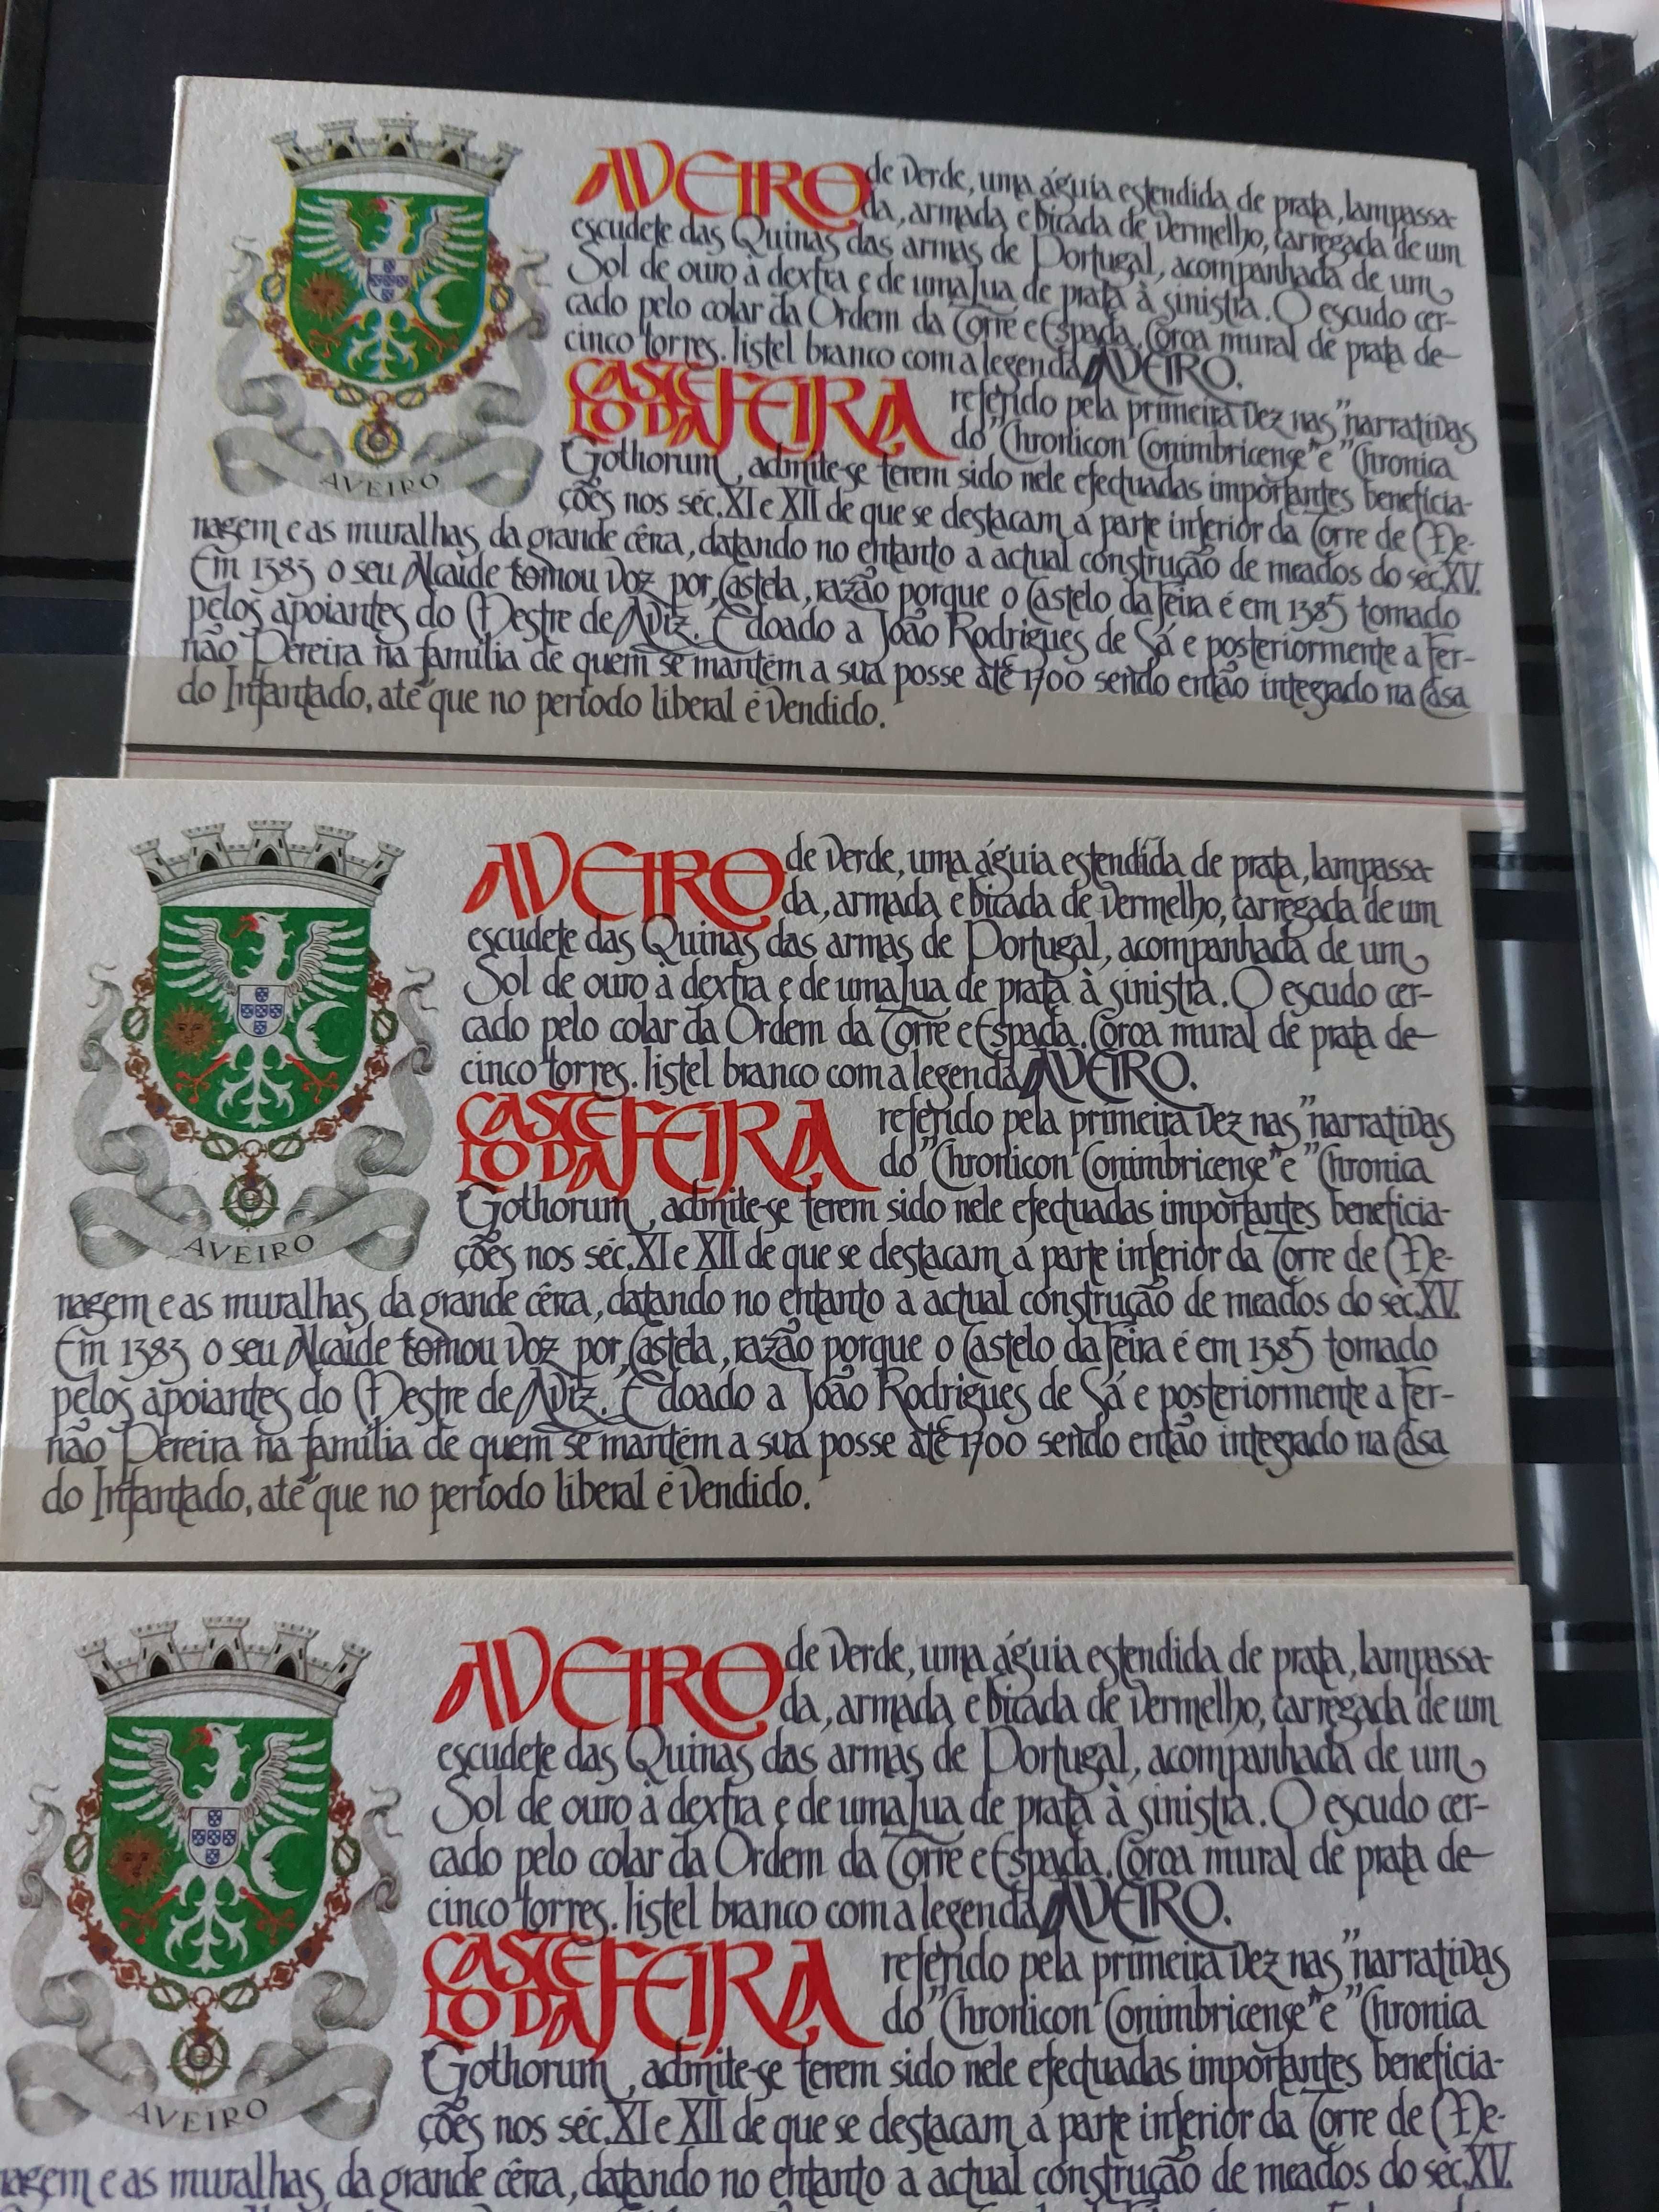 AVEIRO de verde, uma águia estendida de prata, lampassa-
da, armada e bicada de vermelho, carregada de um
escudete das Quinas das armas de Portugal, acompanhada de um
Sol de ouro à dextra e de uma lua de prata à sinistra. O escudo cer-
cado pelo colar da Ordem da Torre e Espada. Coroa mural de prata de
cinco torres. listel branco com a legenda AVEIRO.
CASTELO DA FEIRA referido pela primeira vez nas "narrativas
do "Chronicon Conimbricense" e "Chronica
Gothorum", admite-se terem sido nele efectuadas importantes beneficia-
ções nos séc. XI e XII de que se destacam a parte inferior da Torre de Me-
nagem e as muralhas da grande cêrca, datando no entanto a actual construção de meados do séc. XV.
Em 1383 o seu Alcaide tomou voz por Castela, razão porque o Castelo da Feira é em 1385 tomado
pelos apoiantes do Mestre de Aviz. É doado a João Rodrigues de Sá e posteriormente a Fer-
não Pereira na família de quem se mantém a sua posse até 1700 sendo então integrado na Casa
do Infantado, até que no período liberal é vendido.
AVEIRO
AVEIRO de verde, uma águia estendida de prata, lampassa-
da, armada e bicada de vermelho, carregada de um
escudete das Quinas das armas de Portugal, acompanhada de um
Sol de ouro à dextra e de uma lua de prata à sinistra. O escudo cer-
cado pelo colar da Ordem da Torre e Espada. Coroa mural de prata de
cinco torres. listel branco com a legenda AVEIRO.
CASTELO DA FEIRA referido pela primeira vez nas "narrativas
do "Chronicon Conimbricense" e "Chronica
Gothorum", admite-se terem sido nele efectuadas importantes beneficia-
ções nos séc. XI e XII de que se destacam a parte inferior da Torre de Me-
nagem e as muralhas da grande cêrca, datando no entanto a actual construção de meados do séc. XV.
Em 1383 o seu Alcaide tomou voz por Castela, razão porque o Castelo da Feira é em 1385 tomado
pelos apoiantes do Mestre de Aviz. É doado a João Rodrigues de Sá e posteriormente a Fer-
não Pereira na família de quem se mantém a sua posse até 1700 sendo então integrado na Casa
do Infantado, até que no período liberal é vendido.
AVEIRO
AVEIRO de verde, uma águia estendida de prata, lampassa-
da, armada e bicada de vermelho, carregada de um
escudete das Quinas das armas de Portugal, acompanhada de um
Sol de ouro à dextra e de uma lua de prata à sinistra. O escudo cer-
cado pelo colar da Ordem da Torre e Espada. Coroa mural de prata de
cinco torres. listel branco com a legenda AVEIRO.
CASTELO DA FEIRA referido pela primeira vez nas "narrativas
do "Chronicon Conimbricense" e "Chronica
Gothorum", admite-se terem sido nele efectuadas importantes beneficia-
ções nos séc. XI e XII de que se destacam a parte inferior da Torre de Me-
nagem e as muralhas da grande cêrca, datando no entanto a actual construção de meados do séc. XV.
AVEIRO